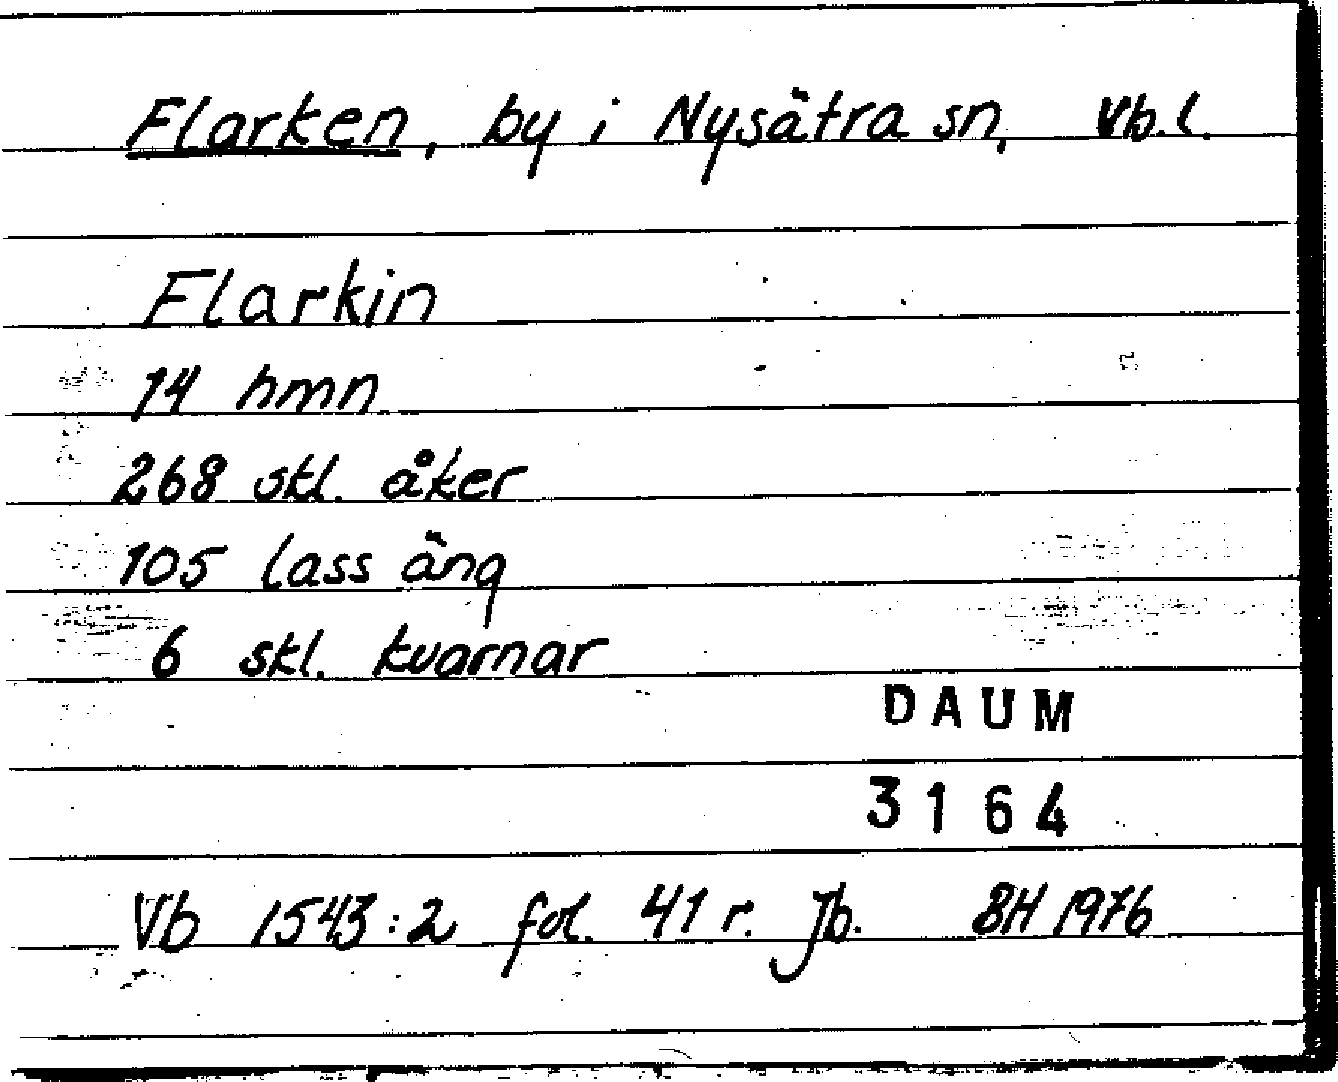 Flarken, by i Nysätra sn, Vb.l.
Flarkin
14 hmn
268 skl. åker
105 lass äng
6 skl. kvarnar
DAUM
3164
Vb 1543:2 fol. 41 r. Jb. BH 1976